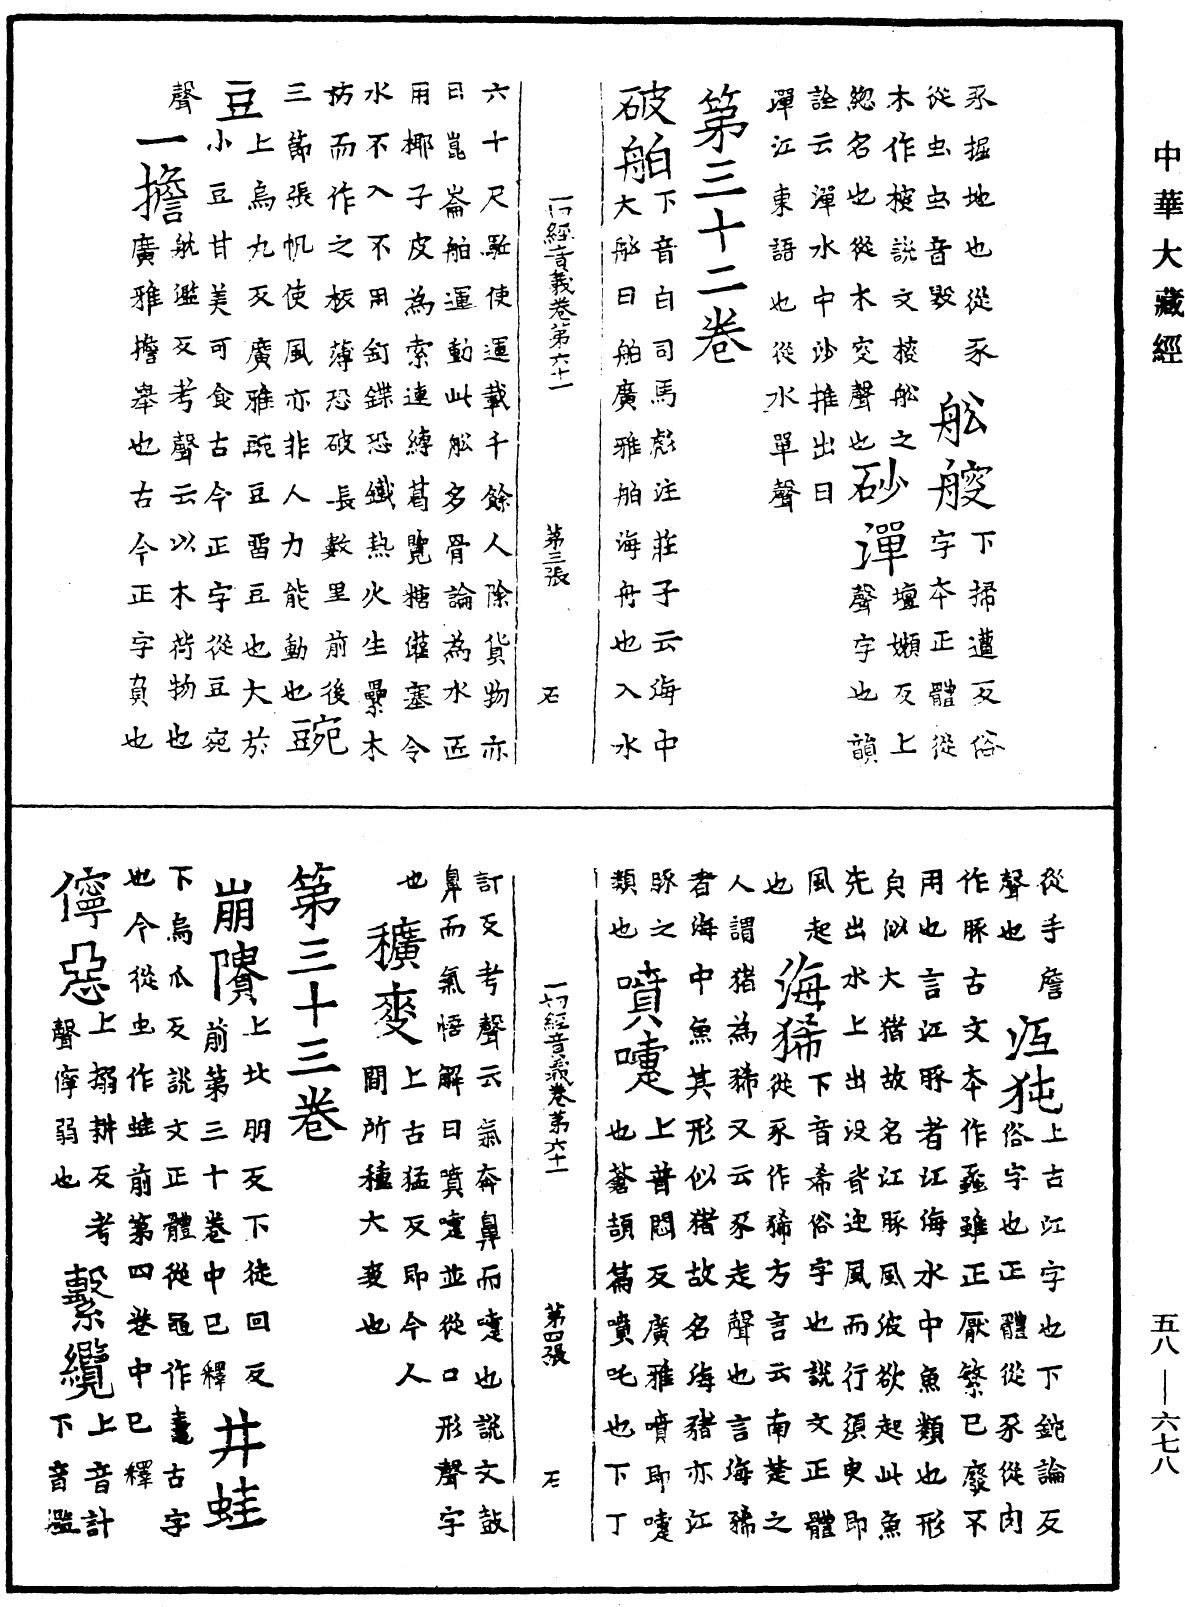 中華大藏經
豕掘地也從豕
從虫虫音毀
舩艘
下掃遭反俗
字夲正體從
木作㮴說文㮴舩之
壇嬾反上
緫名也從木叜聲也
砂潬
聲字也韻
詮云潬水中沙推出曰
潬江東語也從水單聲
第三十二卷
破舶
下音白司馬彪注莊子云海中
大舩曰舶廣雅舶海舟也入水
一切經音義卷第六十一
第三張
石
六十尺駈使運載千餘人除貨物亦
曰崑崙舶運動此舩多骨論為水匠
用椰子皮為索連縛葛覽糖灌塞令
水不入不用釘鍱恐鐵熱火生纍木
枋而作之板薄恐破長數里前後
三節張帆使風亦非人力能動也
豌豆
上烏丸反廣雅豌豆䝁豆也大於
小豆甘美可食古今正字從豆宛
聲
一擔
躭濫反考聲云以木荷物也
廣雅擔舉也古今正字負也
從手詹
聲也
㳶㹠
上古江字也下鈍論反
俗字也正體從豕從肉
作豚古文夲作𧱏雖正厭繁已廢不
用也言江豚者江海水中魚類也形
皃似大猪故名江豚風波欲起此魚
先出水上出沒皆迎風而行須臾即
風起
也
海狶
下音希俗字也說文正體
從豕作豨方言云南楚之
人謂猪為豨又云豕走聲也言海豨
者海中魚其形似猪故名海猪亦江
豚之
類也
噴嚏
上普悶反廣雅噴即嚏
也蒼頡篇噴吒也下丁
一切經音義卷第六十一
第四張
石
計反考聲云氣奔鼻而嚏也說文鼓
鼻而氣悟解曰噴嚏並從口形聲字
也
穬麥
上古猛反即今人
間所種大麥也
第三十三卷
崩隤
上北朋反下徒回反
前第三十卷中已釋
井蛙
下烏瓜反說文正體從黽作鼃古字
也今從虫作蛙前第四卷中已釋
儜惡
上搦耕反考
聲儜弱也
繫纜
上音計
下音濫
五八——六七八